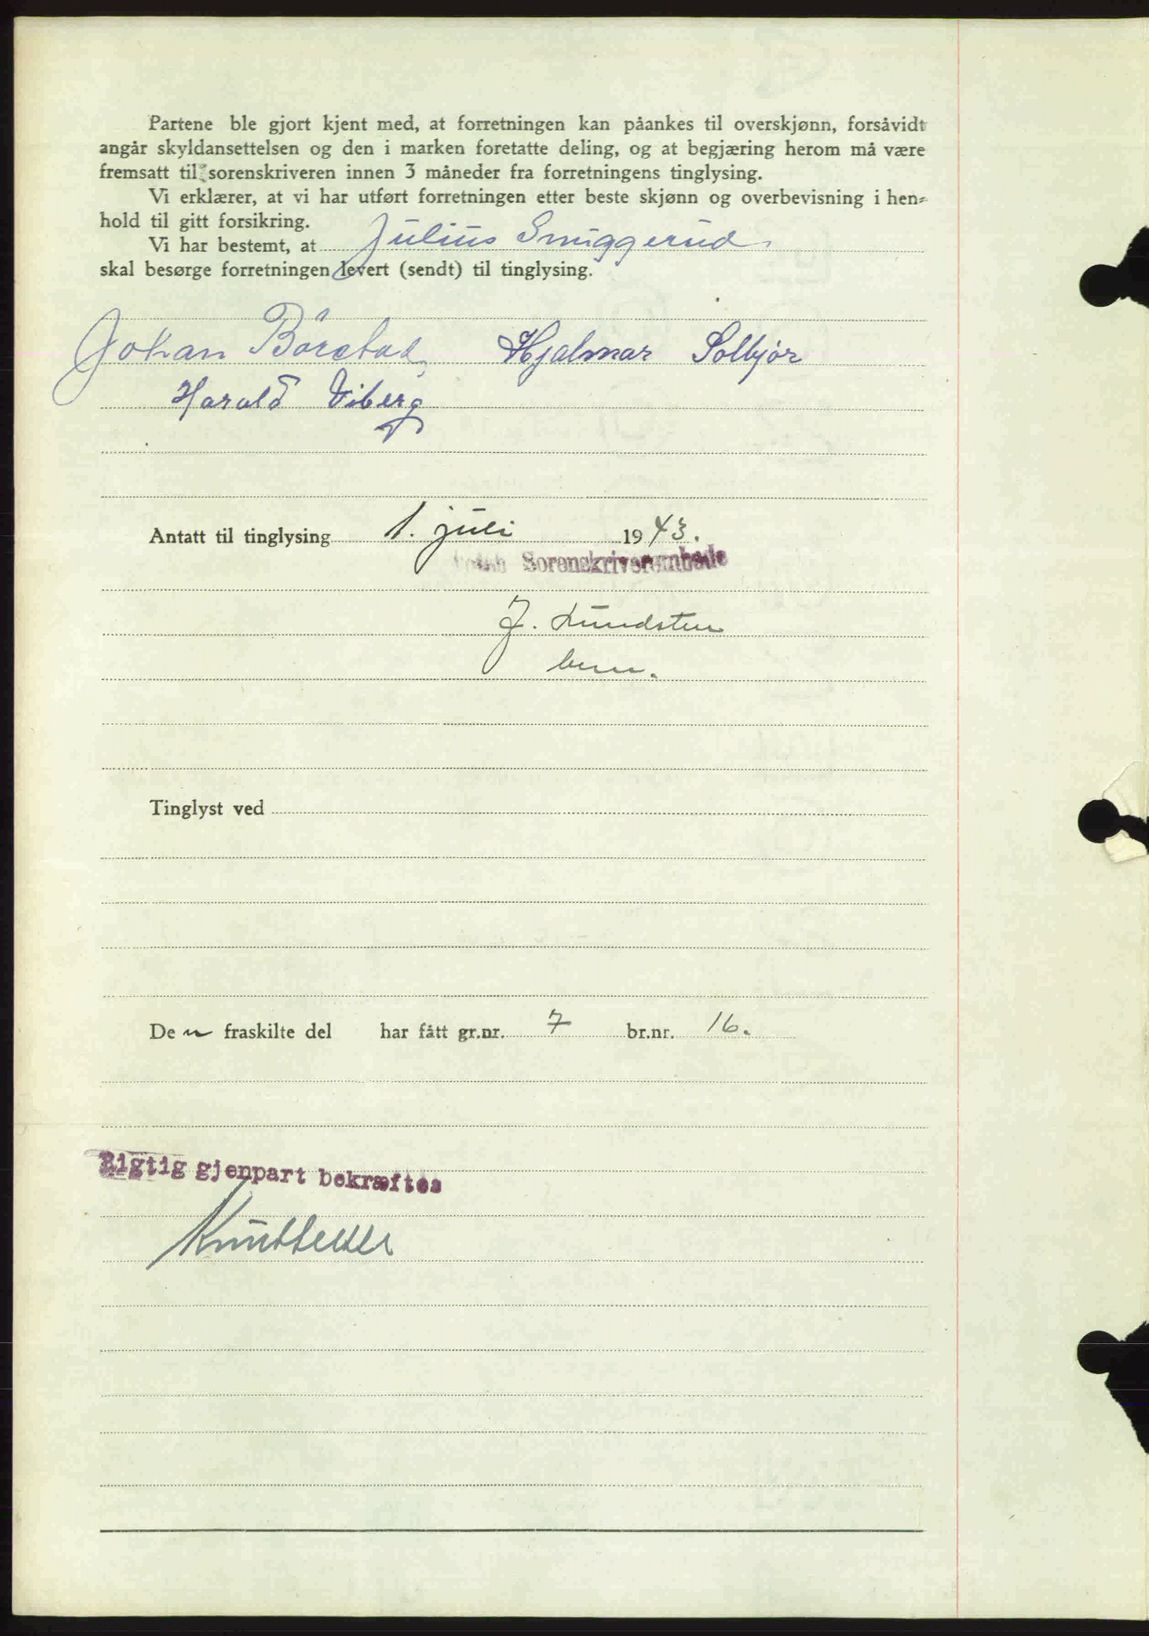 Partene ble gjort kjent med, at forretningen kan påankes til overskjønn, forsåvidt
angår skyldansettelsen og den i marken foretatte deling, og at begjæring herom må være
fremsatt til sorenskriveren innen 3 måneder fra forretningens tinglysing.
Vi erklærer, at vi har utført forretningen etter beste skjønn og overbevisning i hen-
hold til gitt forsikring.
Vi har bestemt, at Julius Smuggerud
skal besørge forretningen levert (sendt) til tinglysing.
Johan Børstad Hjalmar Solbjør
Harald Viberg
Antatt til tinglysing 1. juli 1943.
Sorenskriverembede
J. Lundsten
bem.
Tinglyst ved
De n fraskilte del har fått gr.nr. 7 br.nr. 16.
Rigtig gjenpart bekræftes